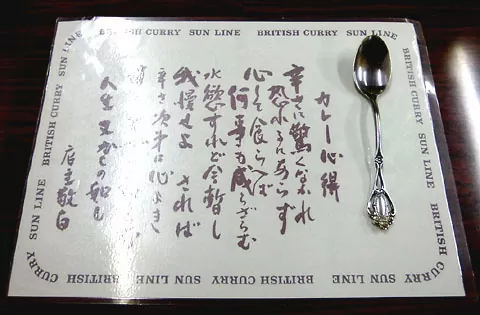 BRITISH CURRY SUN LINE BRITISH CURRY SUN LINE
BRITISH CURRY SUN LINE BRITISH
CURRY SUN LINE BRITISH CURRY SUN LINE BRITISH CURRY
SUN LINE BRITISH CURRY SUN LINE
カレー心得
辛さに驚くなかれ
恐れるにあらず
心して食らへば
何事も成らざらむ
水慾すれど今暫し
我慢せよ されば
辛さ次第に心よき
人生又かくの如し
店主敬白